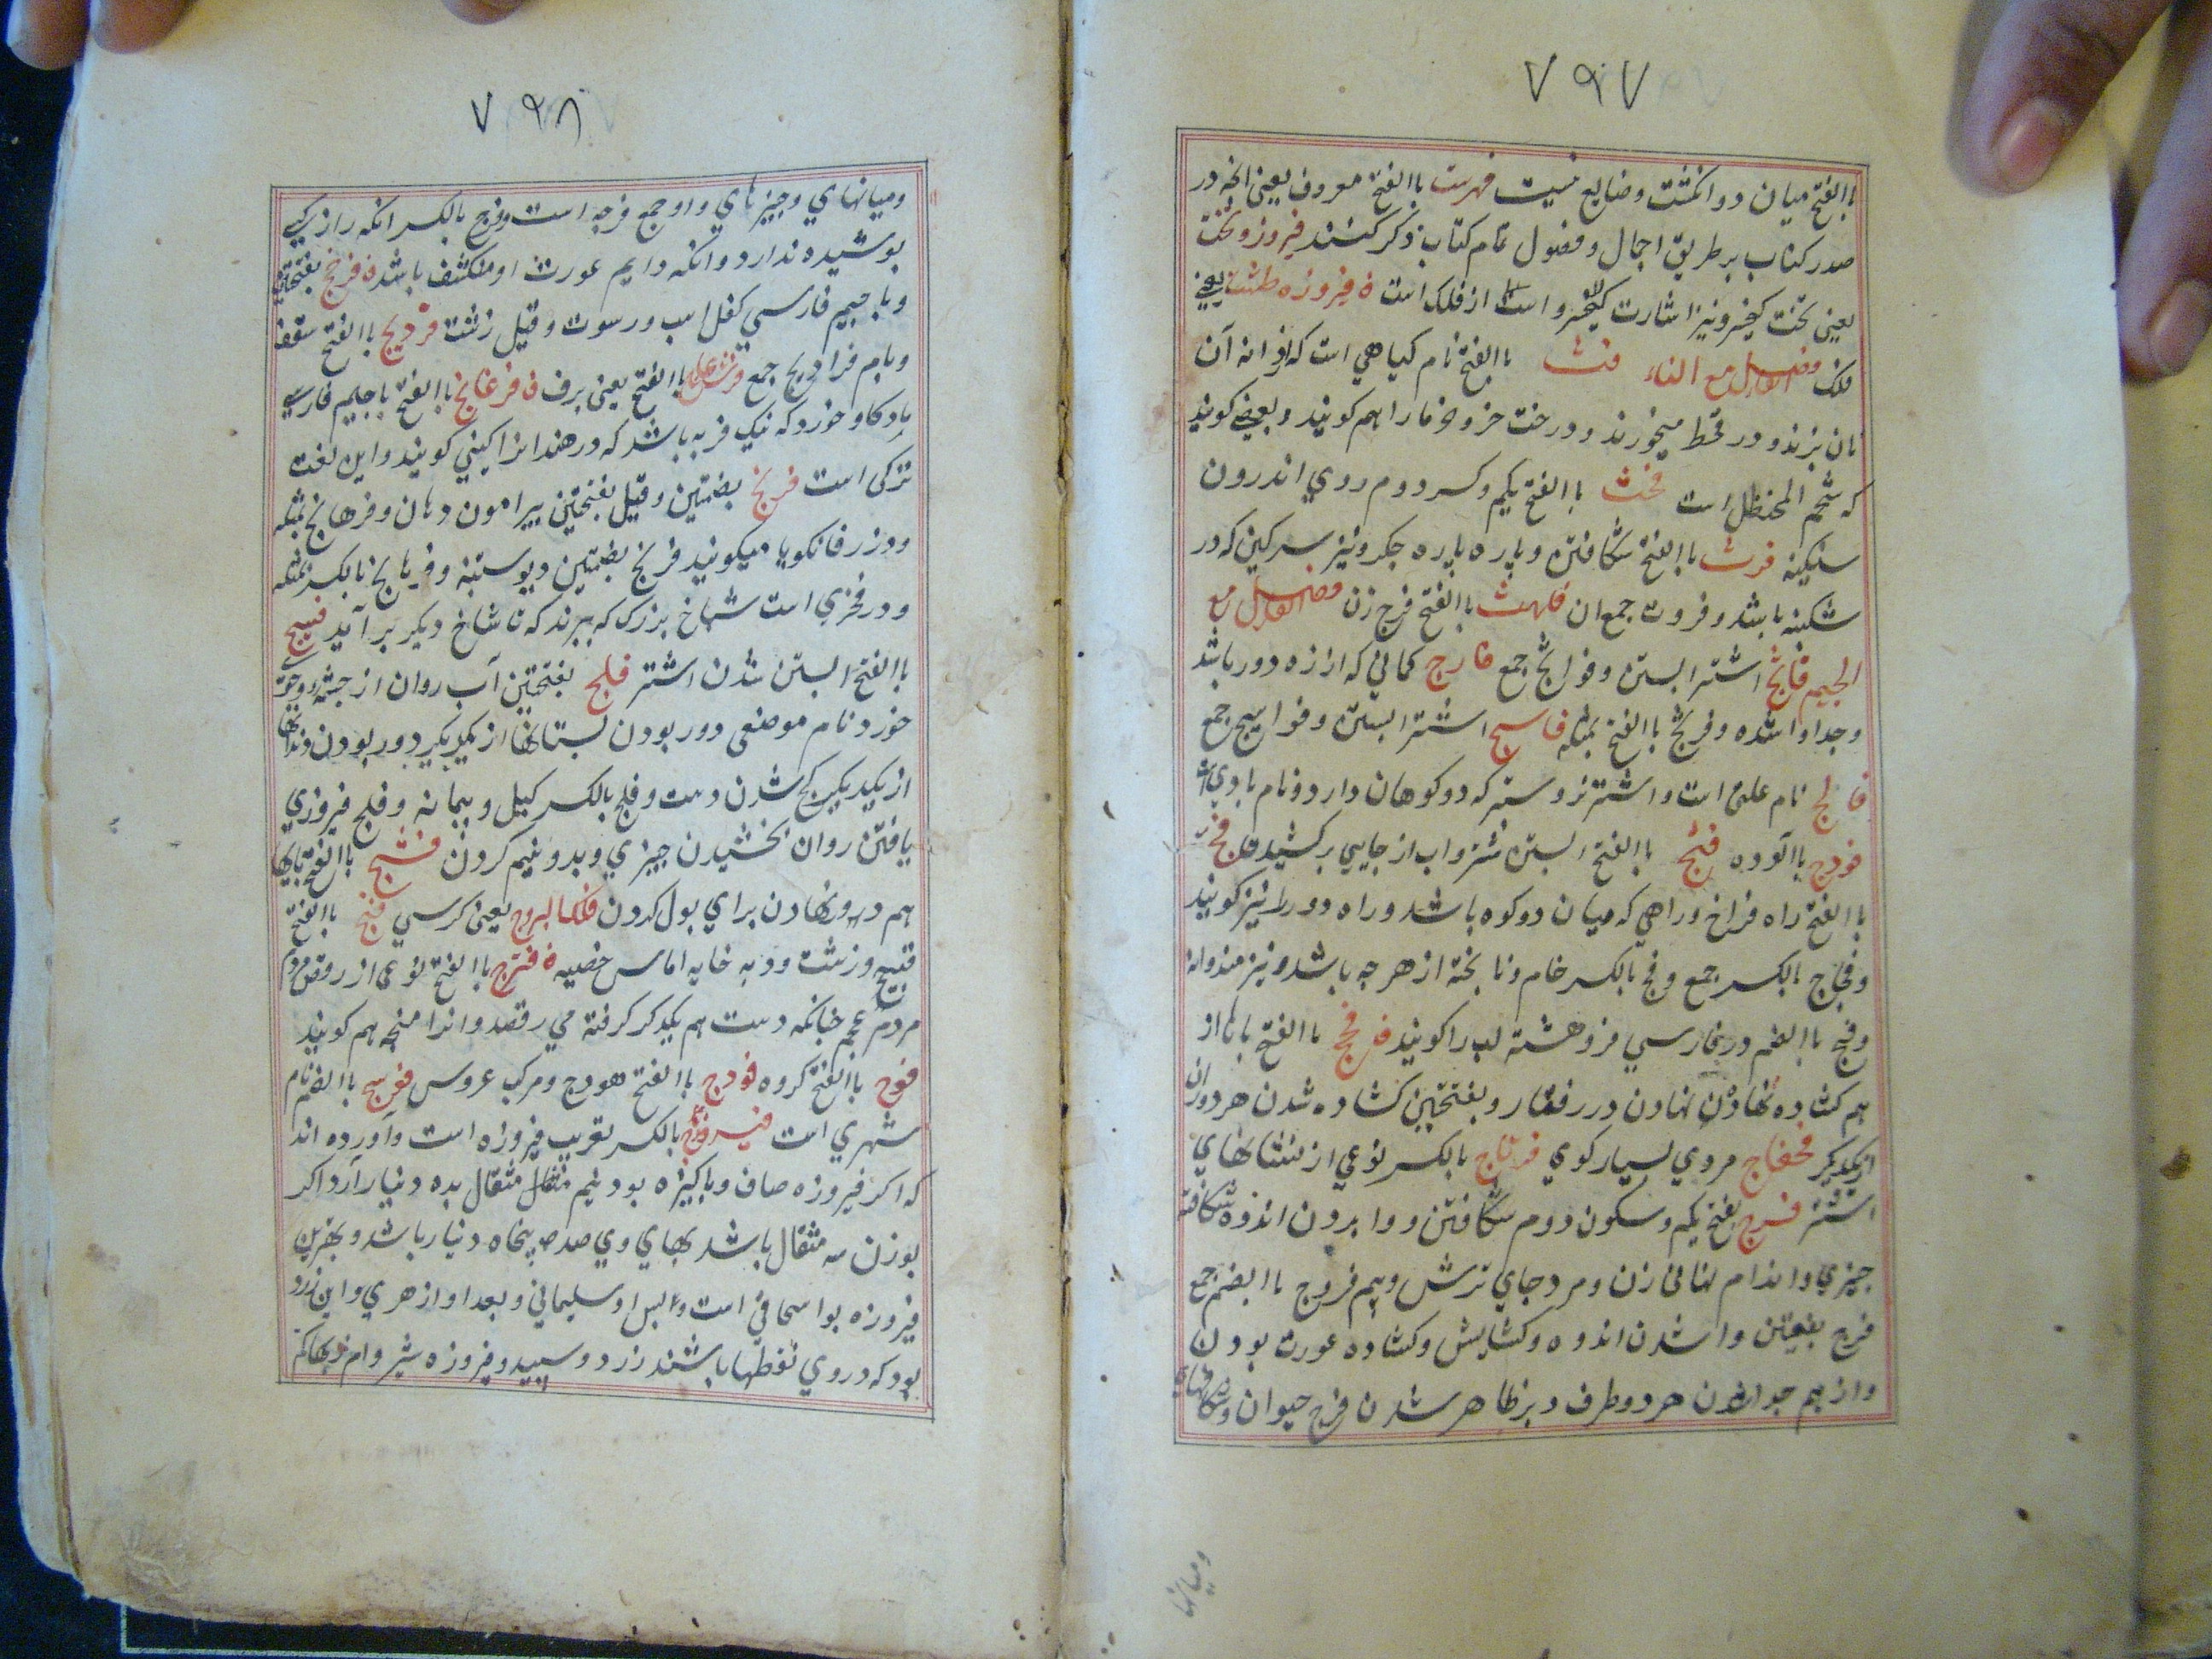 ٧٩٧
باالفتح میان دو انکشت وضایع نیست فهرست باالفتح معروف یعنی انچه در
صدر کتاب بر طریق اجمال وفصول تمام کتاب ذکر کنند فیروزه تخت
یعنی تخت کیخسرو نیز اشارت کیخسرو است از فلک است ه فیروزه طشت یعنی
فلک فصل الفا مع الثاء فث باالفتح نام کیاهی است که از دانه آن
نان پزند ودر قحط میخورند ودرخت خرو خرما را هم کویند وبعضی کویند
که شحم الحنظل است فحث باالفتح یکم وکسر دوم روی اندرون
سنکینه فرث باالفتح شکافتن وپاره پاره جکر ونیز سرکین که در
شکنبه باشد وفروث جمع ان فلهث باالفتح فرج زن فصل الفا مع
الجیم فاثج اشتر ابستن وفواثج جمع فارج کمانی که از زه دور باشد
وجدا واشده وفرثج باالفتح بمثله فاسج اشتر ابستن وفواسج جمع
فالج نام علی است واشتر نر وستبر که دو کوهان دارد ونام بادی است
فودج باالوده فثج باالفتح ابستن شتر واب از جایی برکشیدن فج
باالفتح راه فراخ وراهی که میان دو کوه باشد وراه دور را نیز کویند
وفجاج بالکسر جمع وفج بالکسر خام ونا پخته از هر چه باشد ونیز هندوانه
وفج باالضم در فارسی فروهشته لب را کویند فحج باالفتح پاها از
هم کشاده نهادن نهادن در رفتار وبفتحتین کشاده شدن هر دو ران
از یکدیکر فخفاج مردی بسیار کوی فرتاج بالکسر نوعی از نشانهای
اشتر فرج بفتح یکم وسکون دوم شکافتن ووا بردن اندوه شکافته
چیزی واندام نهانی زن ومرد جای ترس وبیم فروج باالضم جمع
فرج بفتحتین وا شدن اندوه وکشایش وکشاده عورت بودن
واز هم جدا بودن هر دو طرف دبر ظاهر شدن فرج حیوان وشکافهای
ومیانها
٧٩٨
ومیانهای وچیزهای واو جمع فرجه است وفرج بالکسر انکه راز کسی
پوشیده ندارد وانکه دایم عورت او منکشف باشد ه فرنج بفتحتین
وبا جیم فارسی کفل اسب ورسوت وقیل زشت فردیج باالفتح سقف
وبام فرادیج جمع باالفتح یعنی برف ه فرغانج باالفتح باجیم فارسی
بادکاو خورد که نیک فربه باشد که در هند انرا کینی کویند واین لغت
ترکی است فرنج بضمتین وقیل بفتحتین پیرامون دهان وفرهانج بمثله
ودر زفانکویا میکویند فرنج بضمتین وپوستنه وفرهانج نا بکسر بمثله
ودر فخری است شاخ بزرک که ببرند که تا شاخ دیکر بر آید فسیج
باالفتح ابستن شدن اشتر فلج بفتحتین آب روان از چشمه وجوی
خورد نام موضعی دور بودن پستانها از یکدیکر دور بودن دندانها
از یکدیکر کج شدن دست وفلج بالکسر کیل وپیمانه وفلج فیروزی
یافتن روان بخشیدن چیزی وبدو نیم کردن فشج باالفتح پایها
هم دور نهادن برای بول کردن فلک البروج یعنی کرسی فنج باالفتح
قبیح وزشت ودبه خایه اماس خصیه ه فنزج باالفتح نوعی از رقص مردم
مردم عجم چنانکه دست هم یکدکر کرفته می رقصد وانرا پنجه هم کویند
فوج باالفتح کروه فودج باالفتح هودج ومرکب عروس فوسج باالضم نام
شهری است فیروزج بالکسر تعریب فیروزه است وآورده اند
که اکر فیروزه صاف وپاکیزه بود نیم مثقال مثقال بده دینار آرد اکر
بوزن سه مثقال باشد بهای وی صد صد پنجاه دینار باشد وبهترین
فیروزه بواسحاقی است وپس او سلیمانی وبعد او ازهری واین زرد
بود که در وی نقطها باشند زرد وسپید وفیروزه شیروام بها کم